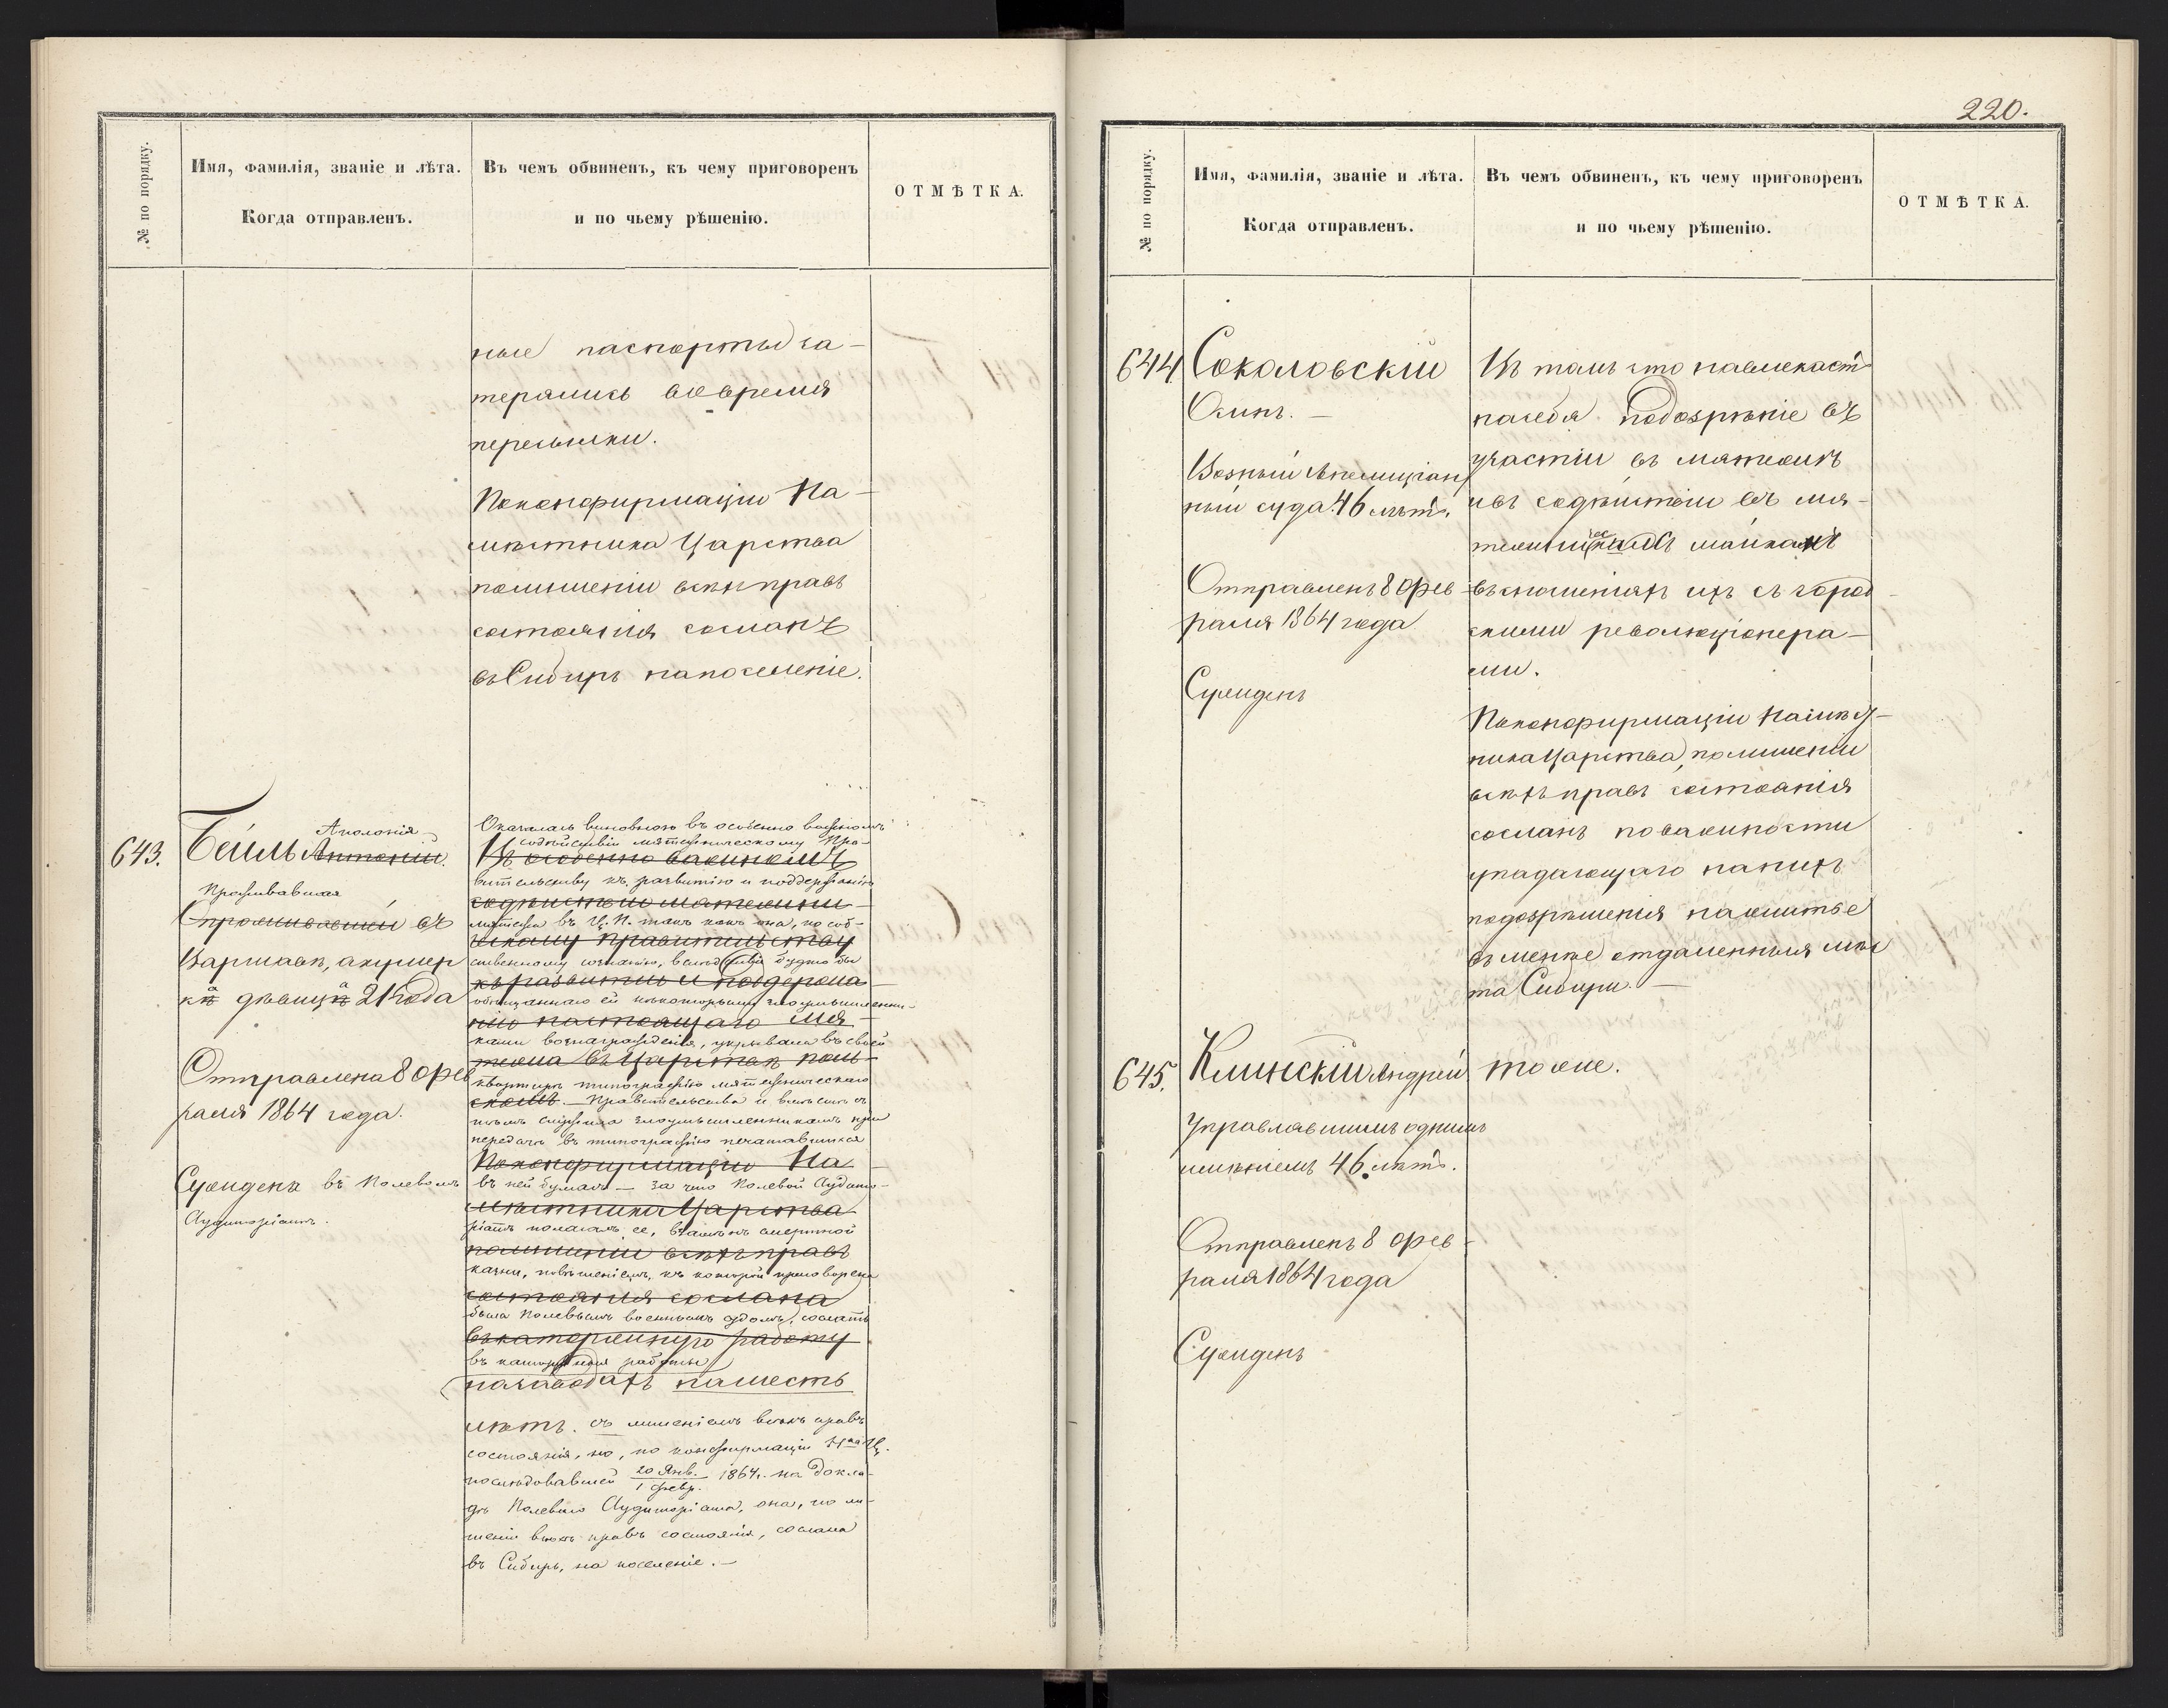 220.
№ по порядку.
Имя, фамилія, званіе и лѣта.
Когда отправленъ.
Въ чемъ обвиненъ, къ чему приговоренъ
и по чьему рѣшенію.
ОТМѢТКА.
ные паспорты за-
терялись во время
пересылки.
По конфирмаціи На-
мѣстника Царства
по лишеніи всѣхъ правъ
состоянія сосланъ
въ Сибирь на поселеніе.
643.
Аполонія
Бейль Антоній.
Проживавшая
проживавшей въ
Варшавѣ, акушер
ка дѣвица 21 года
Отправлена 8 фев
раля 1864 года.
Суждена въ Полевомъ
Аудиторіатѣ.
Оказалась виновною въ особенно важномъ
содѣйствіи мятежническому Пра-
Въ особенно важномъ
вительству къ развитію и поддержанію
содѣйствіи мятежни-
мятежа въ Ц. П. такъ какъ она, по соб-
ческому правительству
ственному сознанію, вслѣдствіе будто бы
къ развитію и поддержа-
обѣщаннаго ей нѣкоторыми злоумышленни-
нію настоящаго мя-
ками вознагражденія, укрывала въ своей
тежа въ Царствѣ Поль-
квартирѣ типографію мятежническаго
скомъ. — Правительства и вмѣстѣ съ
тѣмъ служила злоумышленникамъ при
передачѣ въ типографію печатавшихся
По конфирмаціи На-
въ ней бумагъ — за что Полевой Аудито-
мѣстника Царства
ріатъ полагалъ ее, взамѣнъ смертной
по лишеніи всѣхъ правъ
казни, повѣшеніемъ, къ которой приговорена
состоянія сослана
была Полевымъ военнымъ судомъ, сослать
въ каторжную работу
въ каторжныя работы
на заводахъ на шесть
лѣтъ. съ лишеніемъ всѣхъ правъ
состоянія, но, по конфирмаціи Н-ка Ц.
послѣдовавшей 20 Янв. / 1 февр. 1864 г. на докла-
дѣ Полеваго Аудиторіата, она, по ли-
шеніи всѣхъ правъ состоянія, сослана
въ Сибирь, на поселеніе. —
№ по порядку.
Имя, фамилія, званіе и лѣта.
Когда отправленъ.
Въ чемъ обвиненъ, къ чему приговоренъ
и по чьему рѣшенію.
ОТМѢТКА.
644
Соколовскій
Осипъ. —
Возный Апелиціон
ный суда 46 лѣтъ.
Отправленъ 8 фев
раля 1864 года
Сужденъ
Въ томъ что навлекаетъ
на себя подозрѣніе въ
участіи въ мятежѣ
и въ содѣйствіи въ мя-
шайкамъ
въ сношеніяхъ ихъ съ город
скими революціонера-
ми.
По конфирмаціи Намѣст-
ника Царства, по лишеніи
всѣхъ правъ состоянія
сосланъ по важности
упадающаго на нихъ
подозрѣшенія на житье
въ менѣе отдаленныя мѣс
та Сибири. —
645.
Клинскій Андрей
Управлявшимъ однимъ
имѣніемъ 46 лѣтъ.
Отправленъ 8 фев-
раля 1864 года
Сужденъ
тоже.